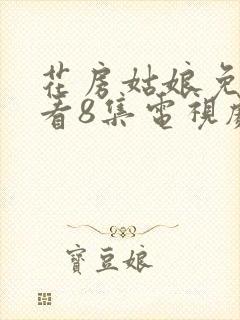 花房姑娘免
看8集電視
寶豆娘